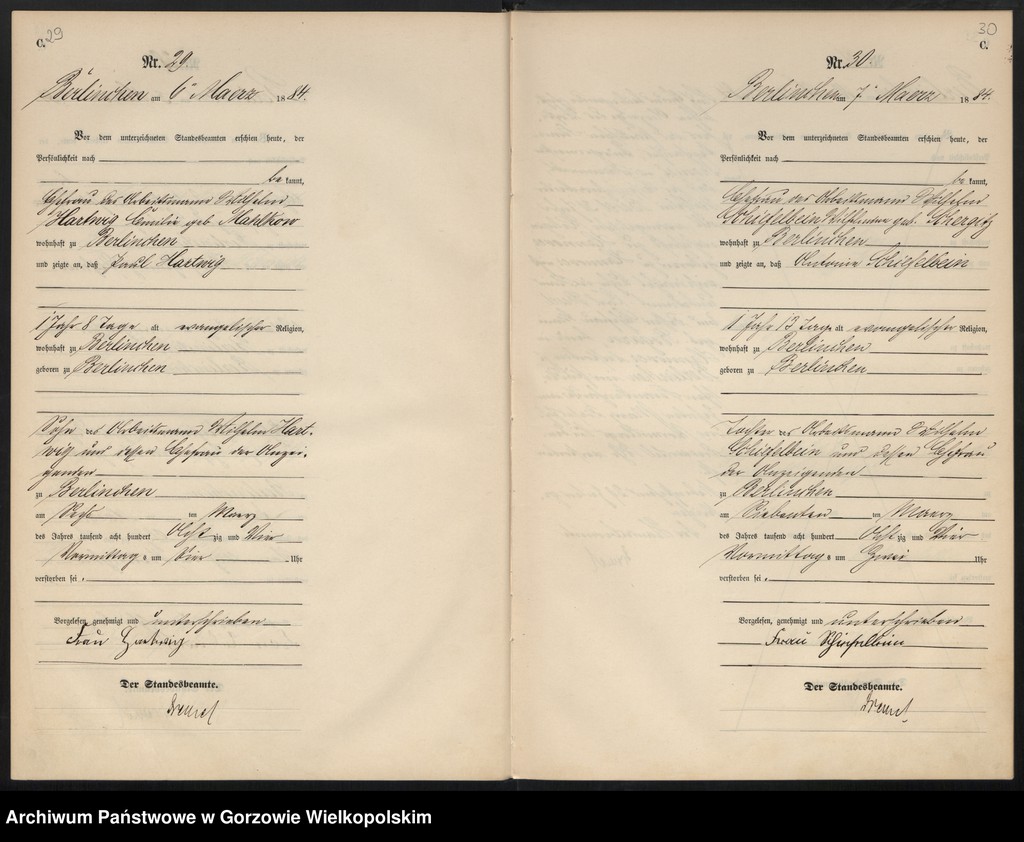 29
C.
Nr. 29.
Berlinchen am 6ten Maerz 1884.
Vor dem unterzeichneten Standesbeamten erschien heute, der
Persönlichkeit nach
be kannt,
Ehefrau des Arbeitsmann Wilhelm
Hartwig Emilie geb Mahlkow
wohnhaft zu Berlinchen
und zeigte an, daß Paul Hartwig
1 Jahr 8 Tage alt evangelischer Religion,
wohnhaft zu Berlinchen
geboren zu Berlinchen
Sohn des Arbeitsmann Wilhelm Hart-
wig und dessen Ehefrau der Anzei-
genden
zu Berlinchen
am Sechs ten Maerz
des Jahres tausend acht hundert Acht zig und Vier
Vormittag s um Vier Uhr
verstorben sei.
Vorgelesen, genehmigt und unterschrieben
Frau Hartwig
Der Standesbeamte.
30
C.
Nr. 30.
Berlinchen am 7ten Maerz 1884.
Vor dem unterzeichneten Standesbeamten erschien heute, der
Persönlichkeit nach
be kannt,
Ehefrau des Arbeitsmann Wilhelm
Schiefelbein Wilhelmine geb.
wohnhaft zu Berlinchen
und zeigte an, daß Antonie Schiefelbein
1 Jahr 13 Tage alt evangelischer Religion,
wohnhaft zu Berlinchen
geboren zu Berlinchen
Tochter des Arbeitsmann Wilhelm
Schiefelbein und dessen Ehefrau
der Anzeigenden
zu Berlinchen
am Siebenten ten Maerz
des Jahres tausend acht hundert Acht zig und Vier
Vormittag s um Zwei Uhr
verstorben sei.
Vorgelesen, genehmigt und unterschrieben
Frau Schiefelbein
Der Standesbeamte.
Archiwum Państwowe w Gorzowie Wielkopolskim